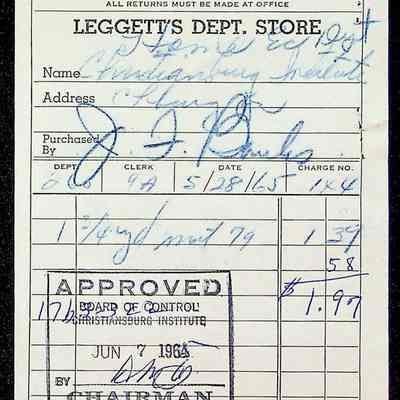 ALL RETURNS MUST BE MADE AT OFFICE
LEGGETT'S DEPT. STORE
Home Ec Dept
Name Christiansburg Institute
Address Cburg Va
Purchased By J. F. Banks
DEPT. CLERK DATE CHARGE NO.
9A 5/28/65 144
1 3/4 yd mat 79 1 39
58
$1.97
APPROVED
BOARD OF CONTROL
CHRISTIANSBURG INSTITUTE
JUN 7 1965
BY
CHAIRMAN